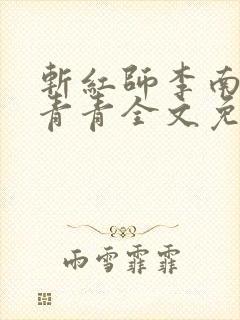 斬紅師李南
青青全文免
雨雪霏霏